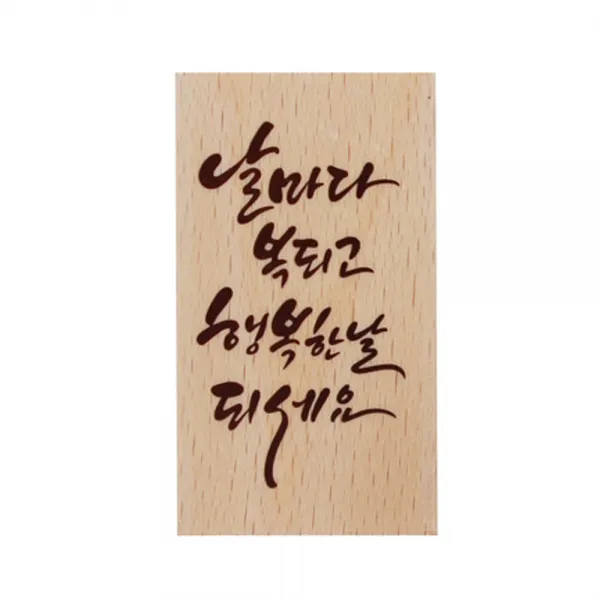 날마다
복되고
행복한날
되세요